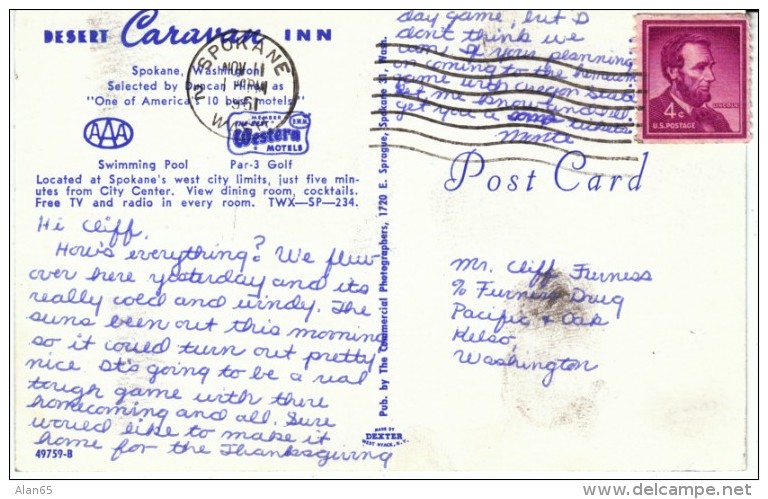 DESERT Caravan INN
Spokane, Washington
Selected by Duncan Hines as
"One of America's 10 best motels"
AAA
MEMBER
Western
MOTELS
Swimming Pool Par-3 Golf
Located at Spokane's west city limits, just five min-
utes from City Center. View dining room, cocktails.
Free TV and radio in every room. TWX—SP—234.
Hi Cliff,
How's everything? We flew
over here yesterday and its
really cold and windy. The
suns been out this morning
so it could turn out pretty
nice. It's going to be a real
tough game with there
homecoming and all. Sure
would like to make it
home for the Thanksgiving
49759-B
day game, but I
dont think we
can. If your planning
on coming to the homecoming
game with Oregon State
let me know and I'll
get you a tickets
SPOKANE
NOV 11
WASH
Pub. by The Commercial Photographers, 1720 E. Sprague, Spokane 31, Wash.
MADE BY
DEXTER
WEST NYACK, N.Y.
4c
U.S. POSTAGE
Post Card
Mr. Cliff Furness
% Furness Drug
Pacific & Oak
Kelso,
Washington
Alan65
delcampe.net